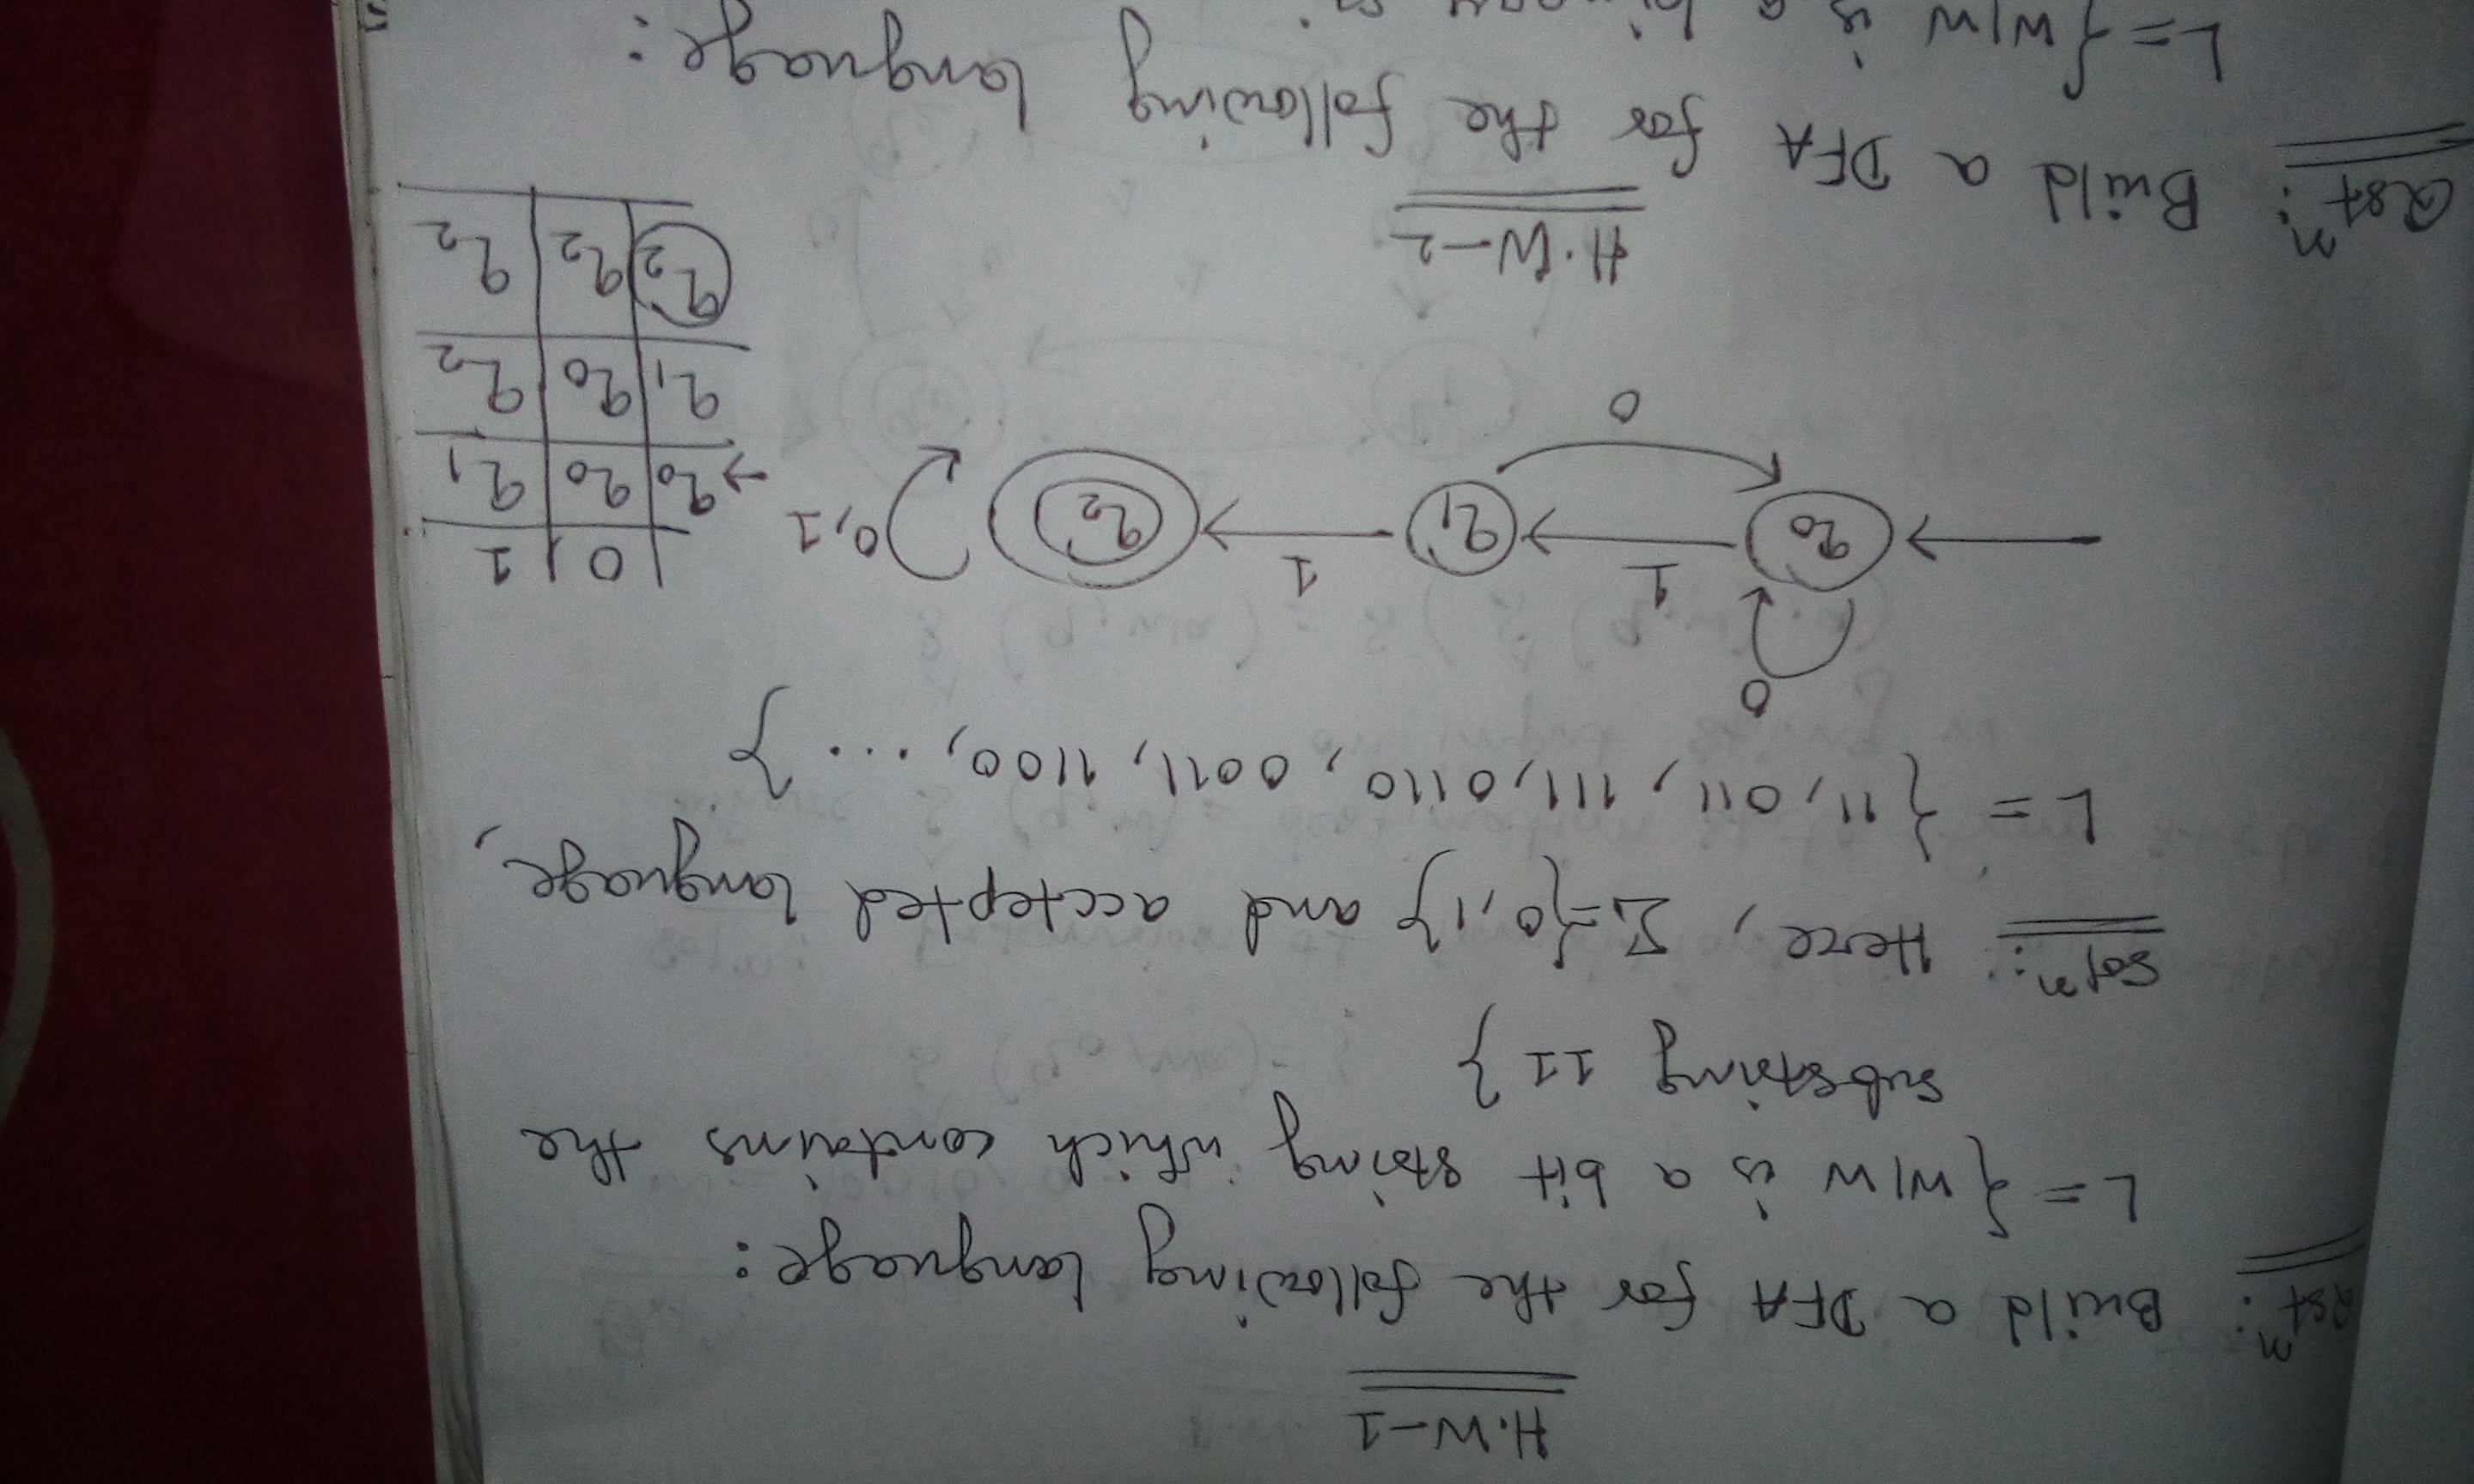 H.W-1
Qstⁿ: Build a DFA for the following language:
L = { W|W is a bit string which contains the
substring 11 }
Solⁿ: Here, Σ={0,1} and acctepted language,
L = { 11, 011, 111, 0110, 0011, 1100, ... }
0
q₀ 1 q₁ 1 q₂ 0,1
0
0 1
→q₀ q₀ q₁
q₁ q₀ q₂
q₂ q₂ q₂
H.W-2
Qstⁿ: Build a DFA for the following language:
L = { W|W is a